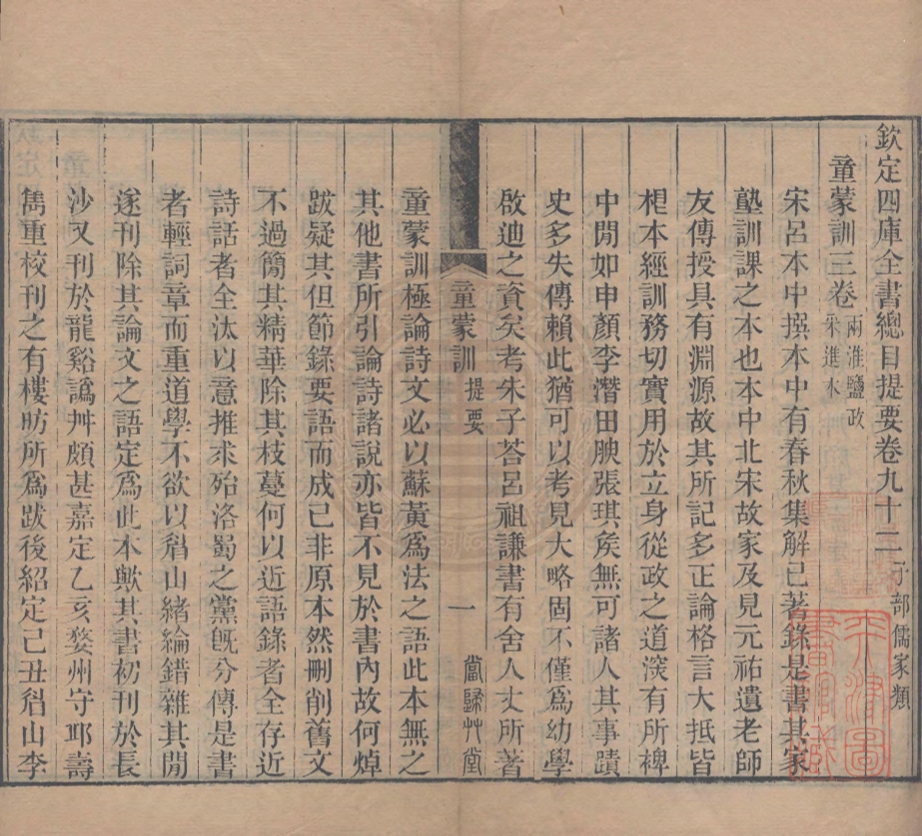 欽定四庫全書總目提要卷九十二子部儒家類
童蒙訓三卷兩淮鹽政采進本
宋呂本中撰本中有春秋集解已著錄是書其家
塾訓課之本也本中北宋故家及見元祐遺老師
友傳授具有淵源故其所記多正論格言大抵皆
根本經訓務切實用於立身從政之道深有所裨
中閒如申顏李潛田腴張琪矦無可諸人其事蹟
史多失傳賴此猶可以考見大略固不僅爲幼學
啟迪之資矣考朱子荅呂祖謙書有舍人丈所著
童蒙訓 提要 一 當歸艸堂
童蒙訓極論詩文必以蘇黃爲法之語此本無之
其他書所引論詩諸說亦皆不見於書內故何焯
跋疑其但節錄要語而成已非原本然刪削舊文
不過簡其精華除其枝蔓何以近語錄者全存近
詩話者全汰以意推求殆洛蜀之黨旣分傳是書
者輕詞章而重道學不欲以眉山緒論錯雜其閒
遂刊除其論文之語定爲此本歟其書初刊於長
沙又刊於龍谿譌舛頗甚嘉定乙亥婺州守邱壽
雋重校刊之有樓昉所爲跋後紹定己丑眉山李